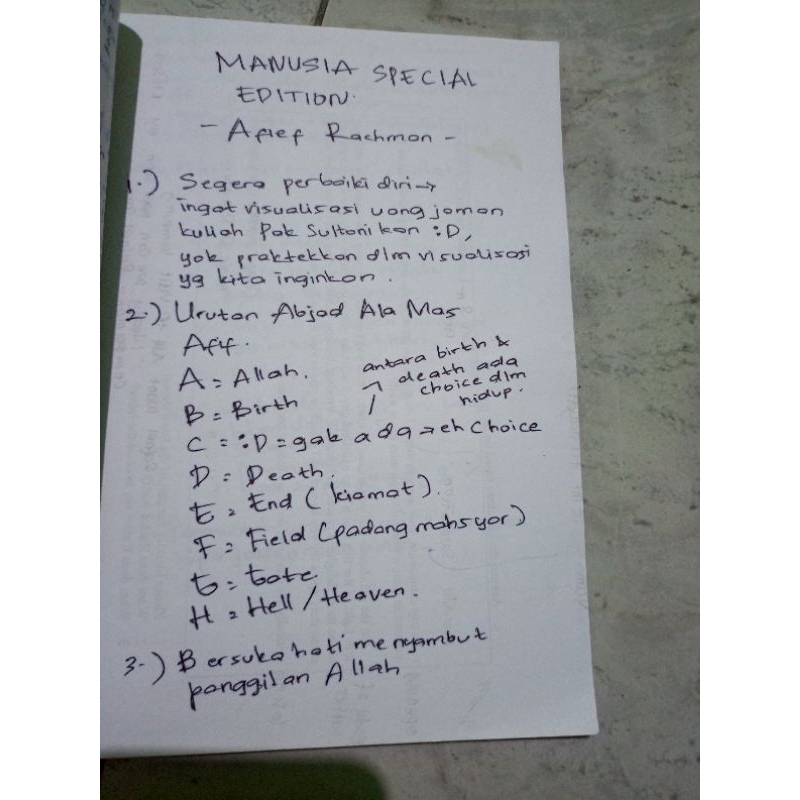 MANUSIA SPECIAL
EDITION.
- Afief Rachman -
1.) Segera perbaiki diri →
ingat visualisasi uang jaman
kuliah Pak Sultoni kan :D,
yok praktekkan dlm visualisasi
yg kita inginkan.
2.) Urutan Abjad Ala Mas
Afif.
A = Allah.
B = Birth
antara birth &
death ada
choice dlm
hidup.
C = :D = gak ada → eh Choice
D = Death.
E = End (kiamat).
F = Field (padang mahsyar)
G = Gate
H = Hell / Heaven.
3.) Bersuka hati menyambut
panggilan Allah